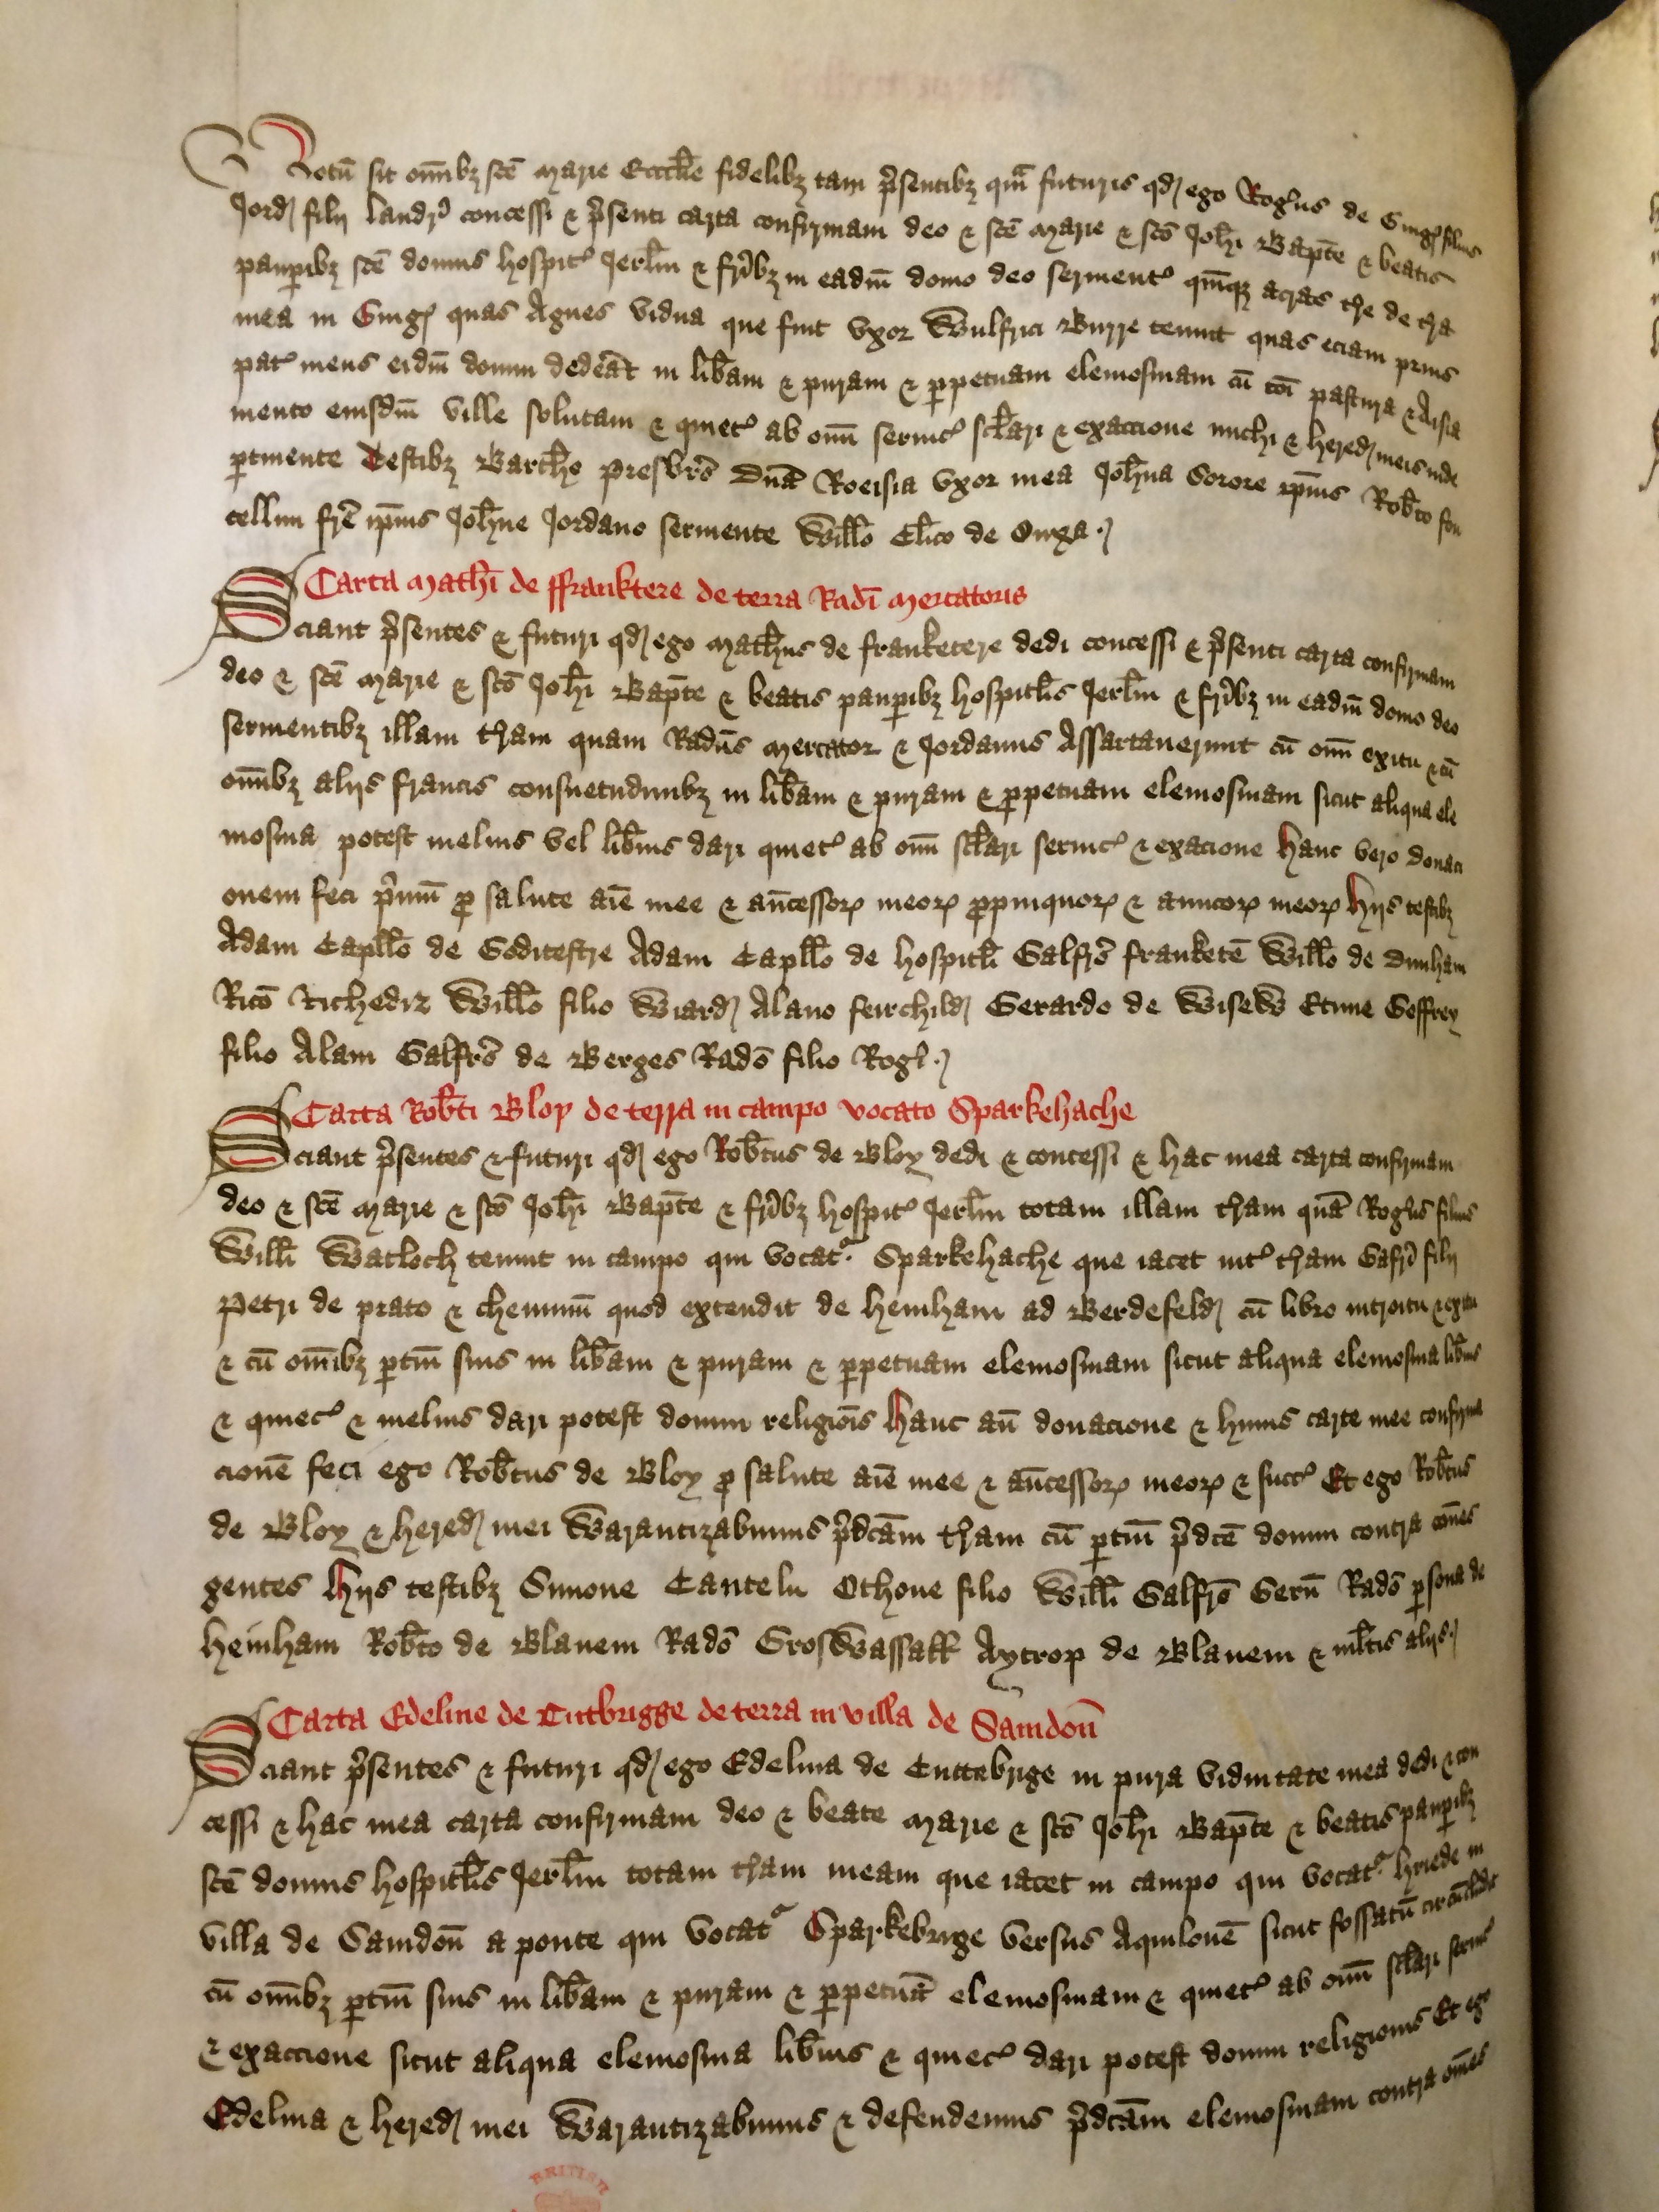 Notū sit om̄ibꝫ scē Marie Eccɫie fidelibꝫ tam p̃sentibꝫ qm̃ futuris qđ ego Rogus de Ginḡ filius
Jorđ filij landr̃ concessi ⁊ p̃senti carta confirmam deo ⁊ scē Marie ⁊ scō Joħi Bap̄te ⁊ beatis
paup̲ibꝫ scē domus hospit᾽ Jerɫm ⁊ fr̃ibꝫ in eadm̄ domo deo seruient᾽ qm̄qꝫ acras tr̄e de tr̄a
mea in Ginḡ quas Agnes vidua que fuit vxor Wulfrici Burre tenuit quas eciam prius
pat᾽ meus eidm̄ domui dedēat in liƀam ⁊ puram ⁊ p̲petuam elemosinam cū cōi pastura ⁊ Aisia
mento eiusdm̄ ville solutam ⁊ quiet᾽ ab om̄i seruic᾽ scɫari ⁊ exaccione michi ⁊ heređ meis inde
p̲tinente Testibꝫ Bartħo presƀro Dn̄a Roeisia vxor mea Joħna Sorore ip̄ius Roƀto fon
cellun fr̄e ip̄ius Joħne Jordano seruiente Wiɫɫo Cɫico de Onga
Carta Matħi de ffranktere de terra Radī Mercatoris
Sciant p̃sentes ⁊ futuri qđ ego Matħus de franketere dedi concessi ⁊ p̃senti carta confirmam
deo ⁊ scē Marie ⁊ scō Joħi Bap̄te ⁊ beatis paup̲ibꝫ hospitɫis Jerɫm ⁊ fr̃ibꝫ in eadm̄ domo deo
seruientibꝫ illam tr̄am quam Radūs Mercator ⁊ Jordanus Assartauerunt cū om̄i exitu ⁊ cū
om̄ibꝫ alijs francis consuetudinibꝫ in liƀam ⁊ puram ⁊ p̲petuam elemosinam sicut aliqua ele
mosina potest melius vel liƀius dari quiet᾽ ab om̄i scɫari seruic᾽ ⁊ exacione Hanc vero donaci
onem feci p̃mū p̲ salute aīe mee ⁊ an̄cessoꝝ meoꝝ p̲pinquoꝝ ⁊ amicoꝝ meoꝝ Hijs testibꝫ
Adam Capɫɫo de Goditestre Adam Capɫɫo de hospitɫi Galfr̄o franketē Wiɫɫo de Dunham
Ricō Richediz Wiɫɫo filio Wiarđ Alano feirchilđ Gerardo de Wisew Etune Geffrey
filio Alani Galfr̄o de Berges Radō filio Rogɫ
Carta Roƀti Bloy de terra in campo vocato Sparkehache
Sciant p̃sentes ⁊ futuri qđ ego Roƀtus de Bloy dedi ⁊ concessi ⁊ hac mea carta confirmam
deo ⁊ scē Marie ⁊ scō Joħi Bap̄te ⁊ fr̃ibꝫ hospit᾽ Jerɫm totam illam tr̄am quā Rogus filius
Wiɫɫi Watloch tenuit in campo qui vocat᾽ Sparkehache que iacet int᾽ tr̄am Gafr̃ filij
Petri de prato ⁊ cheminū quod extendit de Henham ad Berdefelđ cū libro introitu ⁊ exitu
⁊ cū om̄ibꝫ p̲tin̄ suis in liƀam ⁊ puram ⁊ p̲petuam elemosinam sicut aliqua elemosina liƀius
⁊ quiec᾽ ⁊ melius dari potest domui religiōis Hanc aū donacione ⁊ huius carte mee confirma
cionē feci ego Roƀtus de Bloy p̲ salute aīe mee ⁊ an̄cessoꝝ meoꝝ ⁊ succ᾽ Et ego Roƀtus
de Bloy ⁊ heređ mei Warantizabimus p̃dcām tr̄am cū p̲tin̄ p̃dcē domui contra om̄es
gentes Hijs testibꝫ Simone Cantelu Othone filio Wiɫɫi Galfr̄o Gern̄ Radō p̲sona de
Henham Roƀto de Blauem Radō Groswassaɫɫ Aytrop de Blauem ⁊ mɫtis alijs
Carta Edeline de Cutbrigge de terra in villa de Samdon̄
Sciant p̃sentes ⁊ futuri qđ ego Edelina de Cuttebrige in pura viduitate mea dedi ⁊ con
cessi ⁊ hac mea carta confirmam deo ⁊ beate Marie ⁊ scō Joħi Bap̄te ⁊ beatis paup̲ibꝫ
scē domus hospitɫis Jerɫm totam tr̄am meam que iacet in campo qui vocat᾽ hriede in
villa de Samdon̄ a ponte qui vocat᾽ Sparkebrige versus Aquilonē sicut fossatū circūcludit
cū om̄ibꝫ p̲tin̄ suis in liƀam ⁊ puram ⁊ p̲petuā elemosinam ⁊ quiet᾽ ab om̄i scɫari seruic᾽
⁊ exaccione sicut aliqua elemosina liƀius ⁊ quiec᾽ dari potest domui religionis Et ego
Edelina ⁊ heređ mei Warantizabimus ⁊ defendemus p̃dcām elemosinam contra om̄es
BRITISH